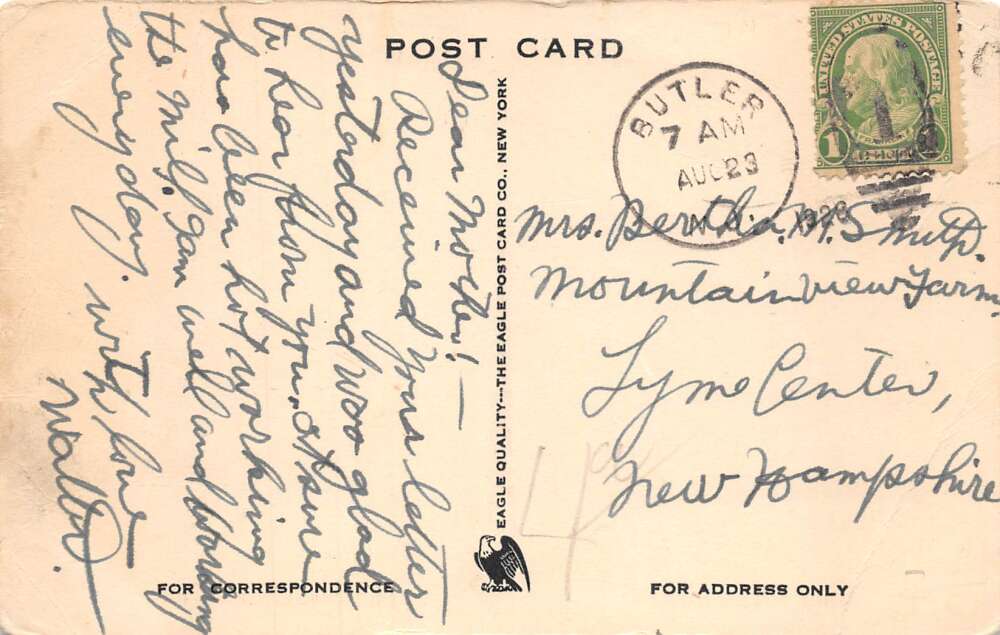 POST CARD
Dear Mother! —
Received your letter
yesterday and was glad
to hear from you. It sure
has been hot working
the mill. I am well and working
every day. with love
Walter.
EAGLE QUALITY—THE EAGLE POST CARD CO., NEW YORK
UNITED STATES POSTAGE
1
1
BUTLER
7 AM
AUG 23
N.J.
1928
Mrs. Bertha. M. Smith.
Mountain view Farm
Lyme Center,
New Hampshire
FOR CORRESPONDENCE
FOR ADDRESS ONLY